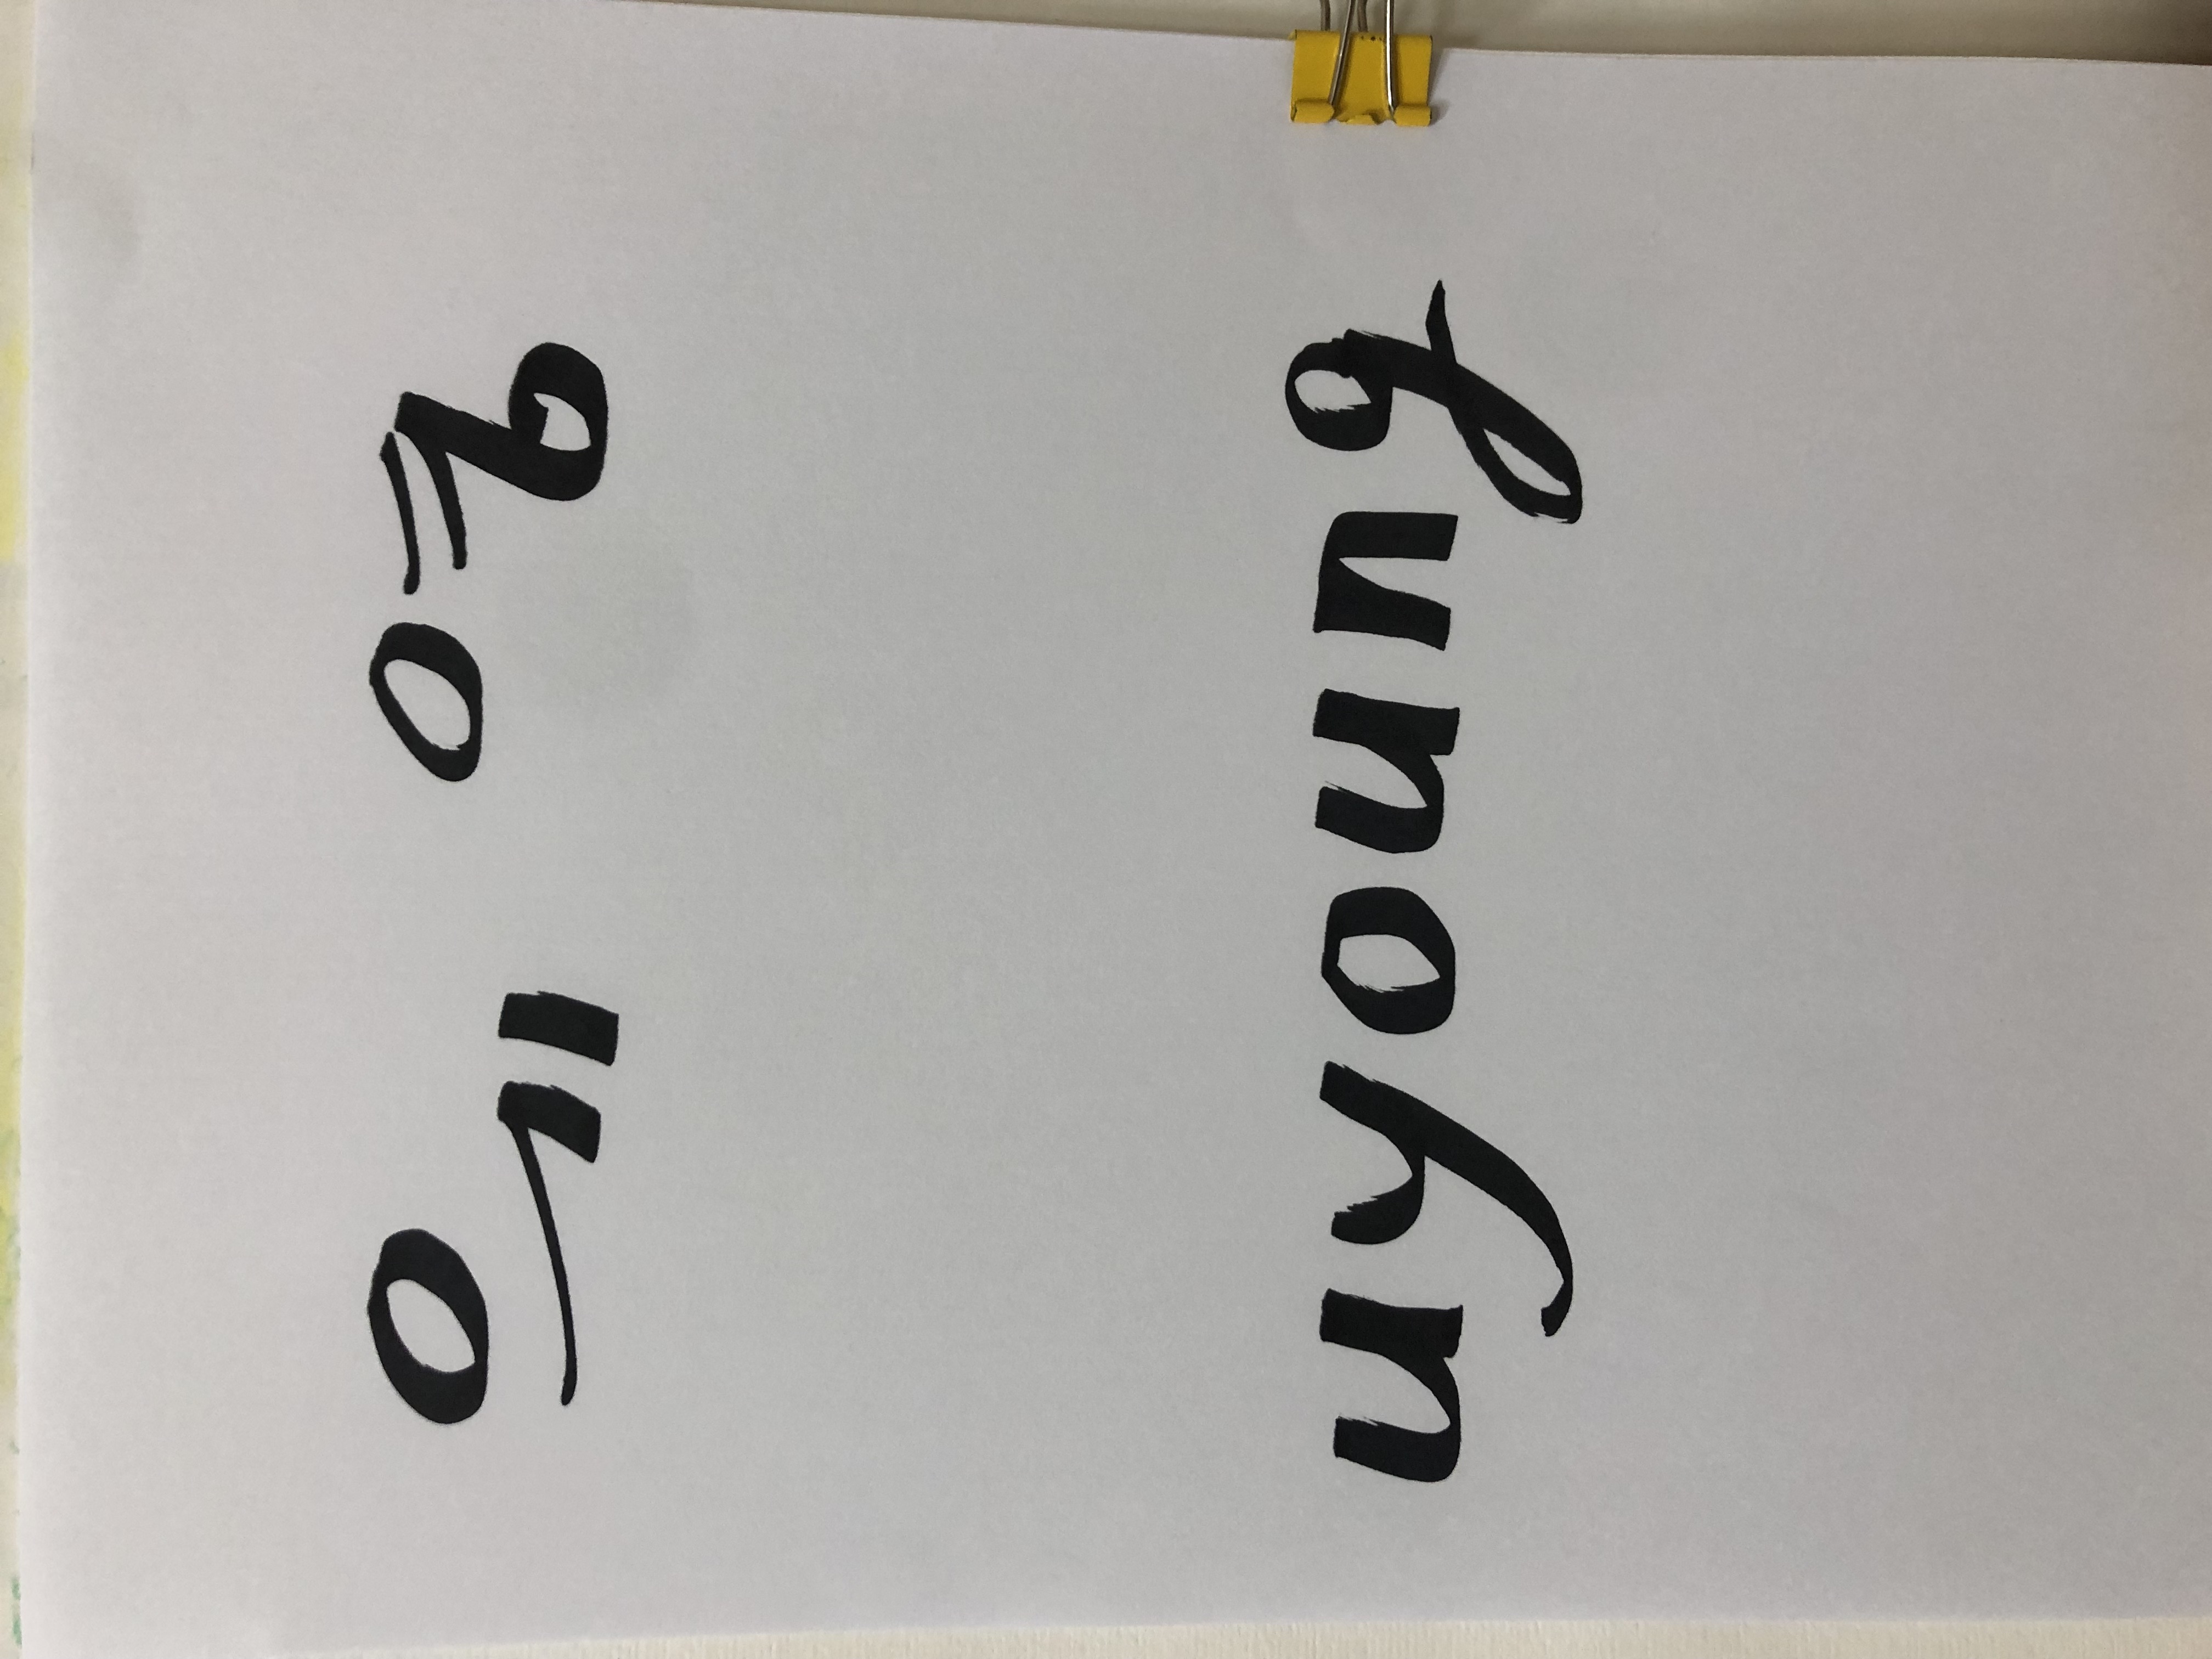 유 영
uyoung